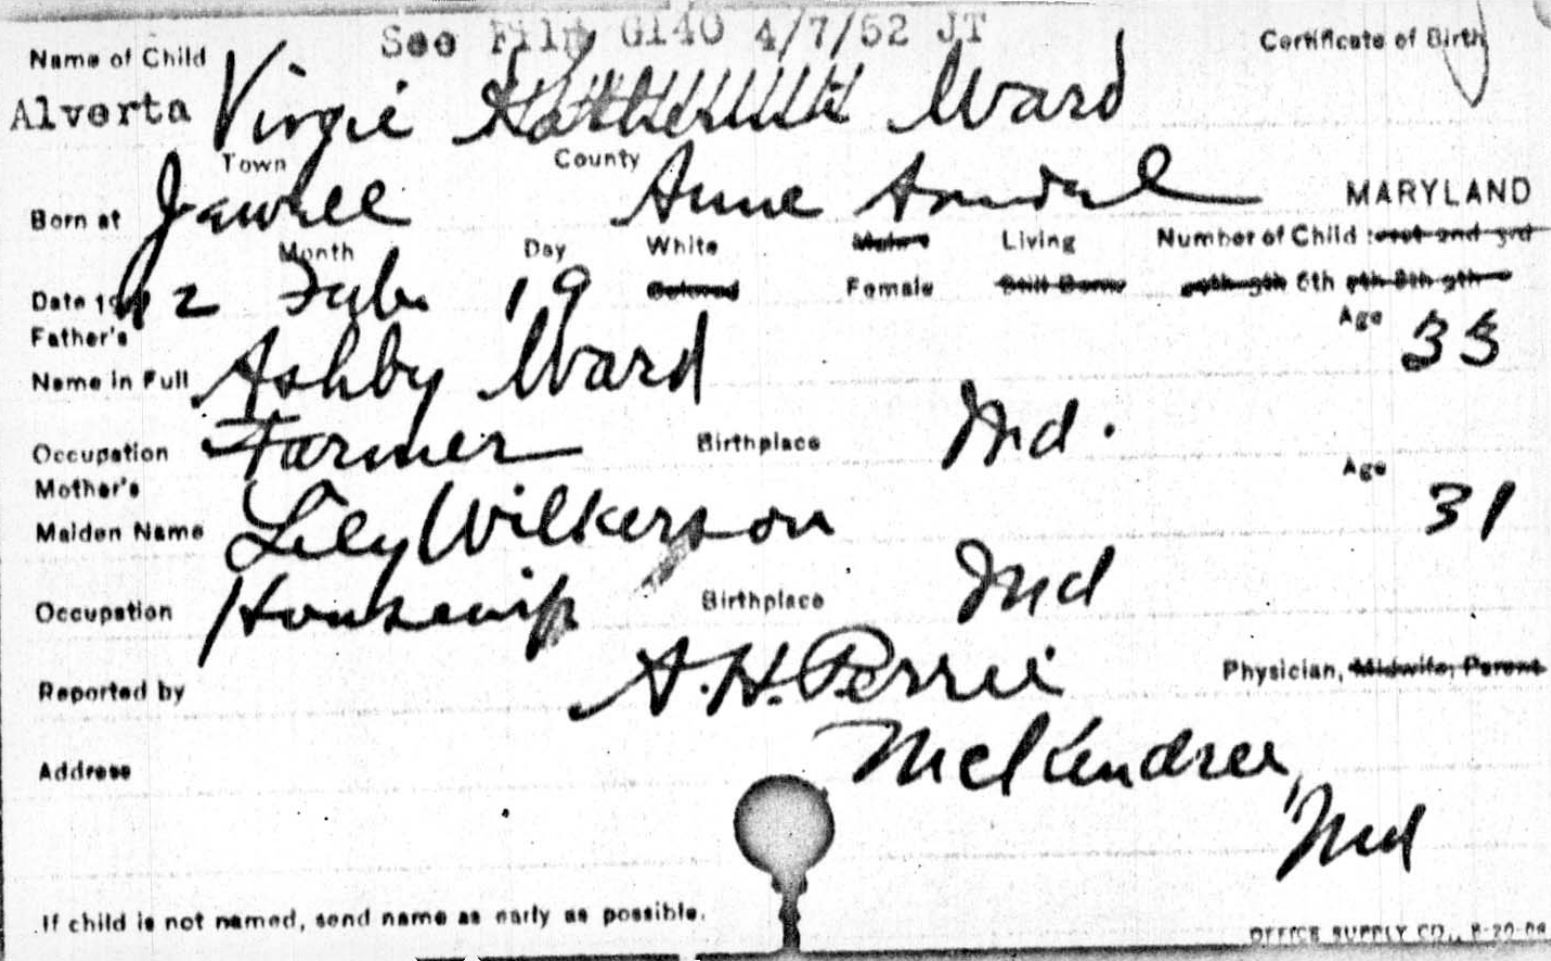 See File G140 4/7/52 JT
Name of Child Certificate of Birth
Alverta Virgie Katherine Ward
Town County
Born at Jewell Anne Arundel MARYLAND
Month Day White Male Living Number of Child 1st 2nd 3rd
Date 1912 Feb. 19 Colored Female Still Born 4th 5th 6th 7th 8th 9th
Father's Age 33
Name in Full Ashby Ward
Occupation Farmer Birthplace Md.
Mother's Age 31
Maiden Name Lily Wilkerson
Occupation Housewife Birthplace Md
Reported by A. H. Perrie Physician, Midwife, Parent
Address McKendree,
Md
If child is not named, send name as early as possible.
OFFICE SUPPLY CO.,